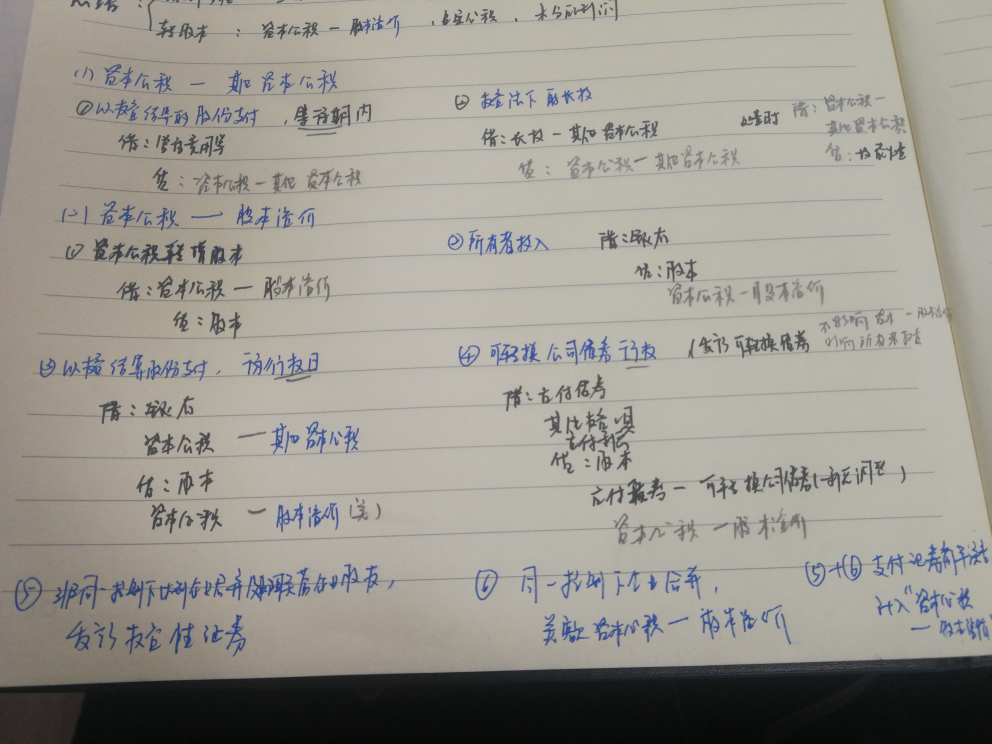 转股本：资本公积—股本溢价，盈余公积，未分配利润
(1) 资本公积—其他资本公积
①以权益结算的股份支付，等待期内
借：管理费用等
贷：资本公积—其他资本公积
②权益法下的长投
借：长投—其他资本公积
贷：资本公积—其他资本公积
处置时 借：资本公积—
其他资本公积
贷：投资收益
(二) 资本公积—股本溢价
①资本公积转增股本
借：资本公积—股本溢价
贷：股本
②所有者投入 借：银存
贷：股本
资本公积—股本溢价
③以权益结算股份支付，于行权日
借：银存
资本公积—其他资本公积
贷：股本
资本公积—股本溢价(差)
④可转换公司债券行权
(发行可转换债券 不影响资本—股本溢价
影响所有者权益
借：应付债券
其他权益
应付利息
贷：股本
应付债券—可转换公司债券(利息调整)
资本公积—股本溢价
⑤非同一控制下
发行权益性证券
⑥同一控制下企业合并，
差额资本公积—股本溢价
⑤+⑥支付证券
计入"资本公积
—股本溢价"